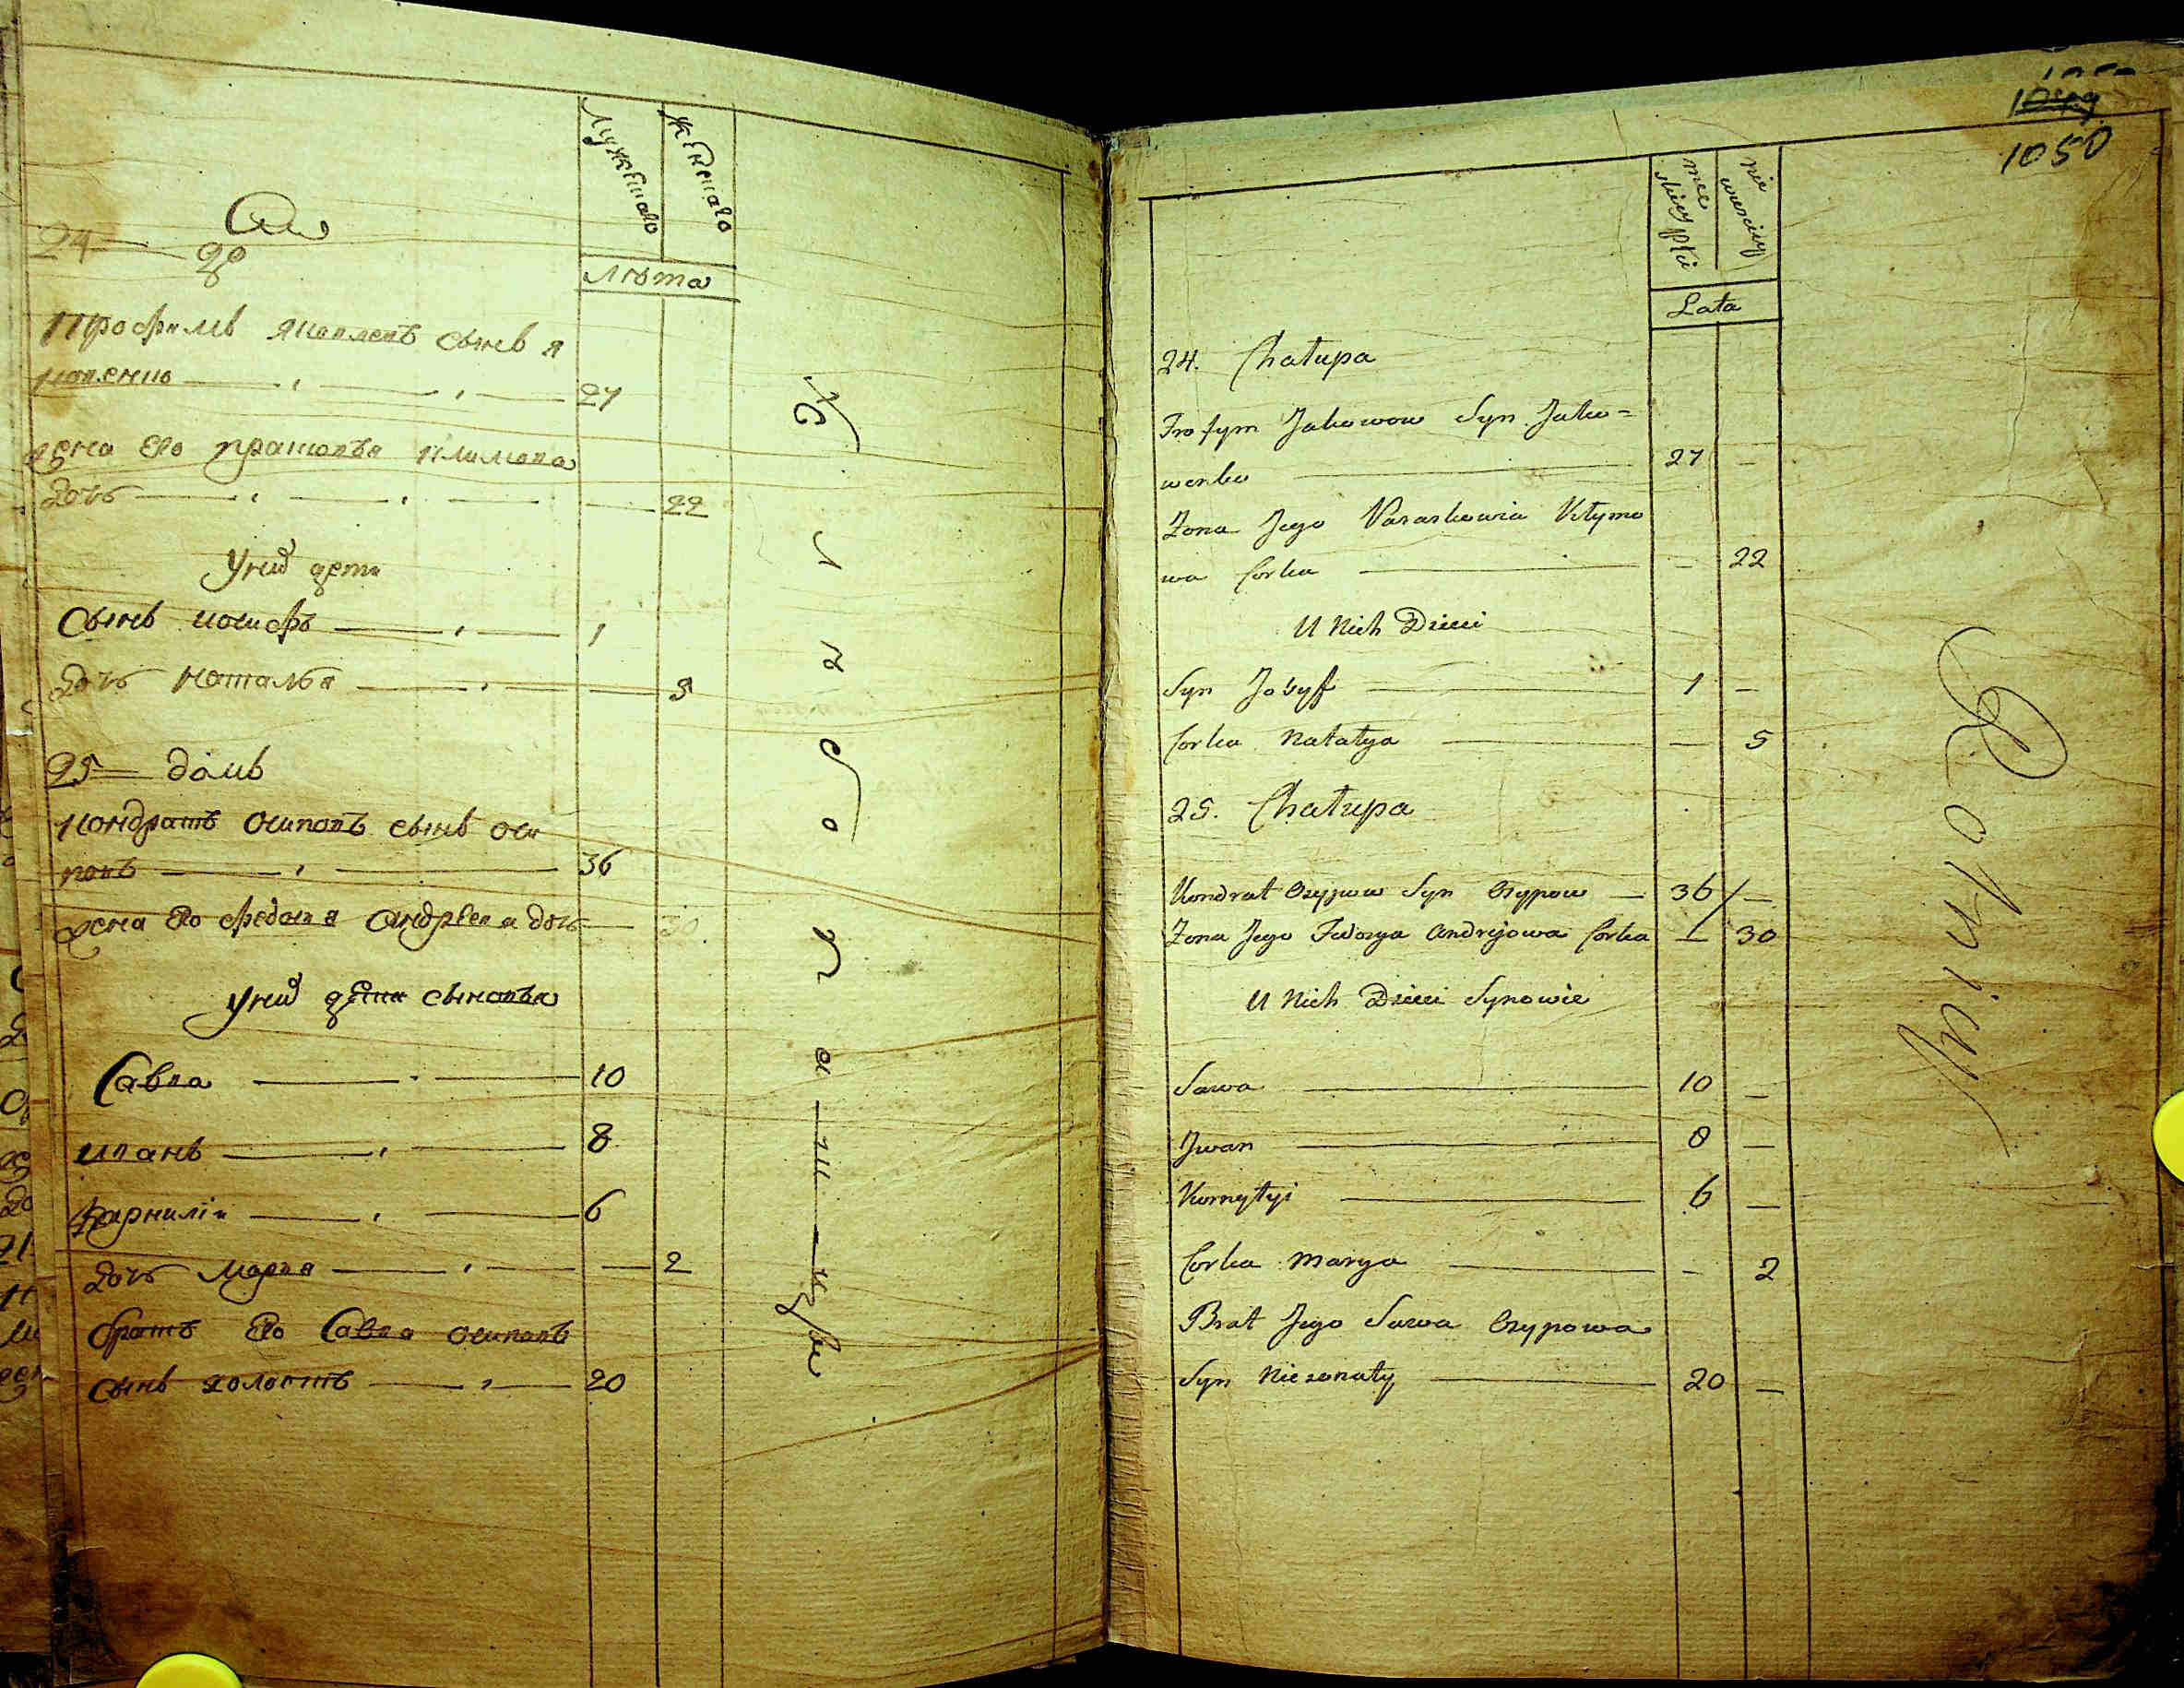 Мужескаго
Женскаго
Лѣта
24 — до
Трофимъ Яковлевъ сынъ Я
ковенко — 27
жена Его Прасковья Климова
дочь — 22
Унихъ дети
Сынъ иосифъ — 1
дочь наталья — 5
25 — домъ
Кондратъ осиповъ сынъ оси
повъ — 36
жена Его Федосия Андрѣева дочь — 30
Унихъ дети сыновья
Савва — 10
иванъ — 8
Карнилiи — 6
дочь Марья — 2
братъ Его Савва осиповъ
сынъ холостъ — 20
1050
męs
kiey płci
nie
wieściey
Lata
24. Chałupa
Trofym Jakowow Syn Jako=
wenko — 27 —
Zona Jego Paraskowia Kłymo
wa Corka — 22
U Nich Dzieci
Syn Josyff — 1 —
Corka Natałya — 5
25. Chałupa
Kondrat Osypow Syn Osypow — 36 —
Zona Jego Fedosya Andryiowa Corka — 30
U Nich Dzieci Synowie
Sawa — 10 —
Jwan — 8 —
Kornyłyi — 6 —
Corka Marya — 2
Brat Jego Sawa Osypowa
Syn Niezonaty — 20 —
Rolniey